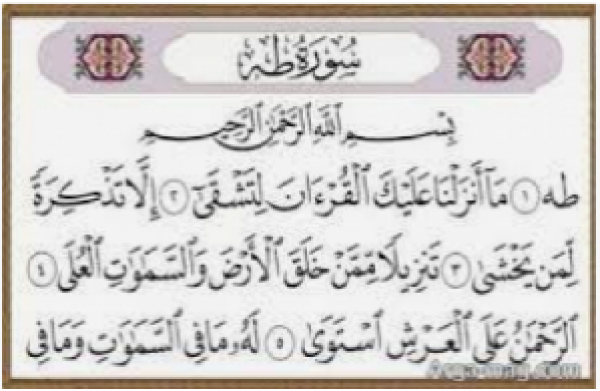 سُورَةُ طه
بِسْمِ ٱللَّهِ ٱلرَّحْمَٰنِ ٱلرَّحِيمِ
طه ١ مَآ أَنزَلْنَا عَلَيْكَ ٱلْقُرْءَانَ لِتَشْقَىٰٓ ٢ إِلَّا تَذْكِرَةً
لِّمَن يَخْشَىٰ ٣ تَنزِيلًا مِّمَّنْ خَلَقَ ٱلْأَرْضَ وَٱلسَّمَٰوَٰتِ ٱلْعُلَى ٤
ٱلرَّحْمَٰنُ عَلَى ٱلْعَرْشِ ٱسْتَوَىٰ ٥ لَهُۥ مَا فِى ٱلسَّمَٰوَٰتِ وَمَا فِى